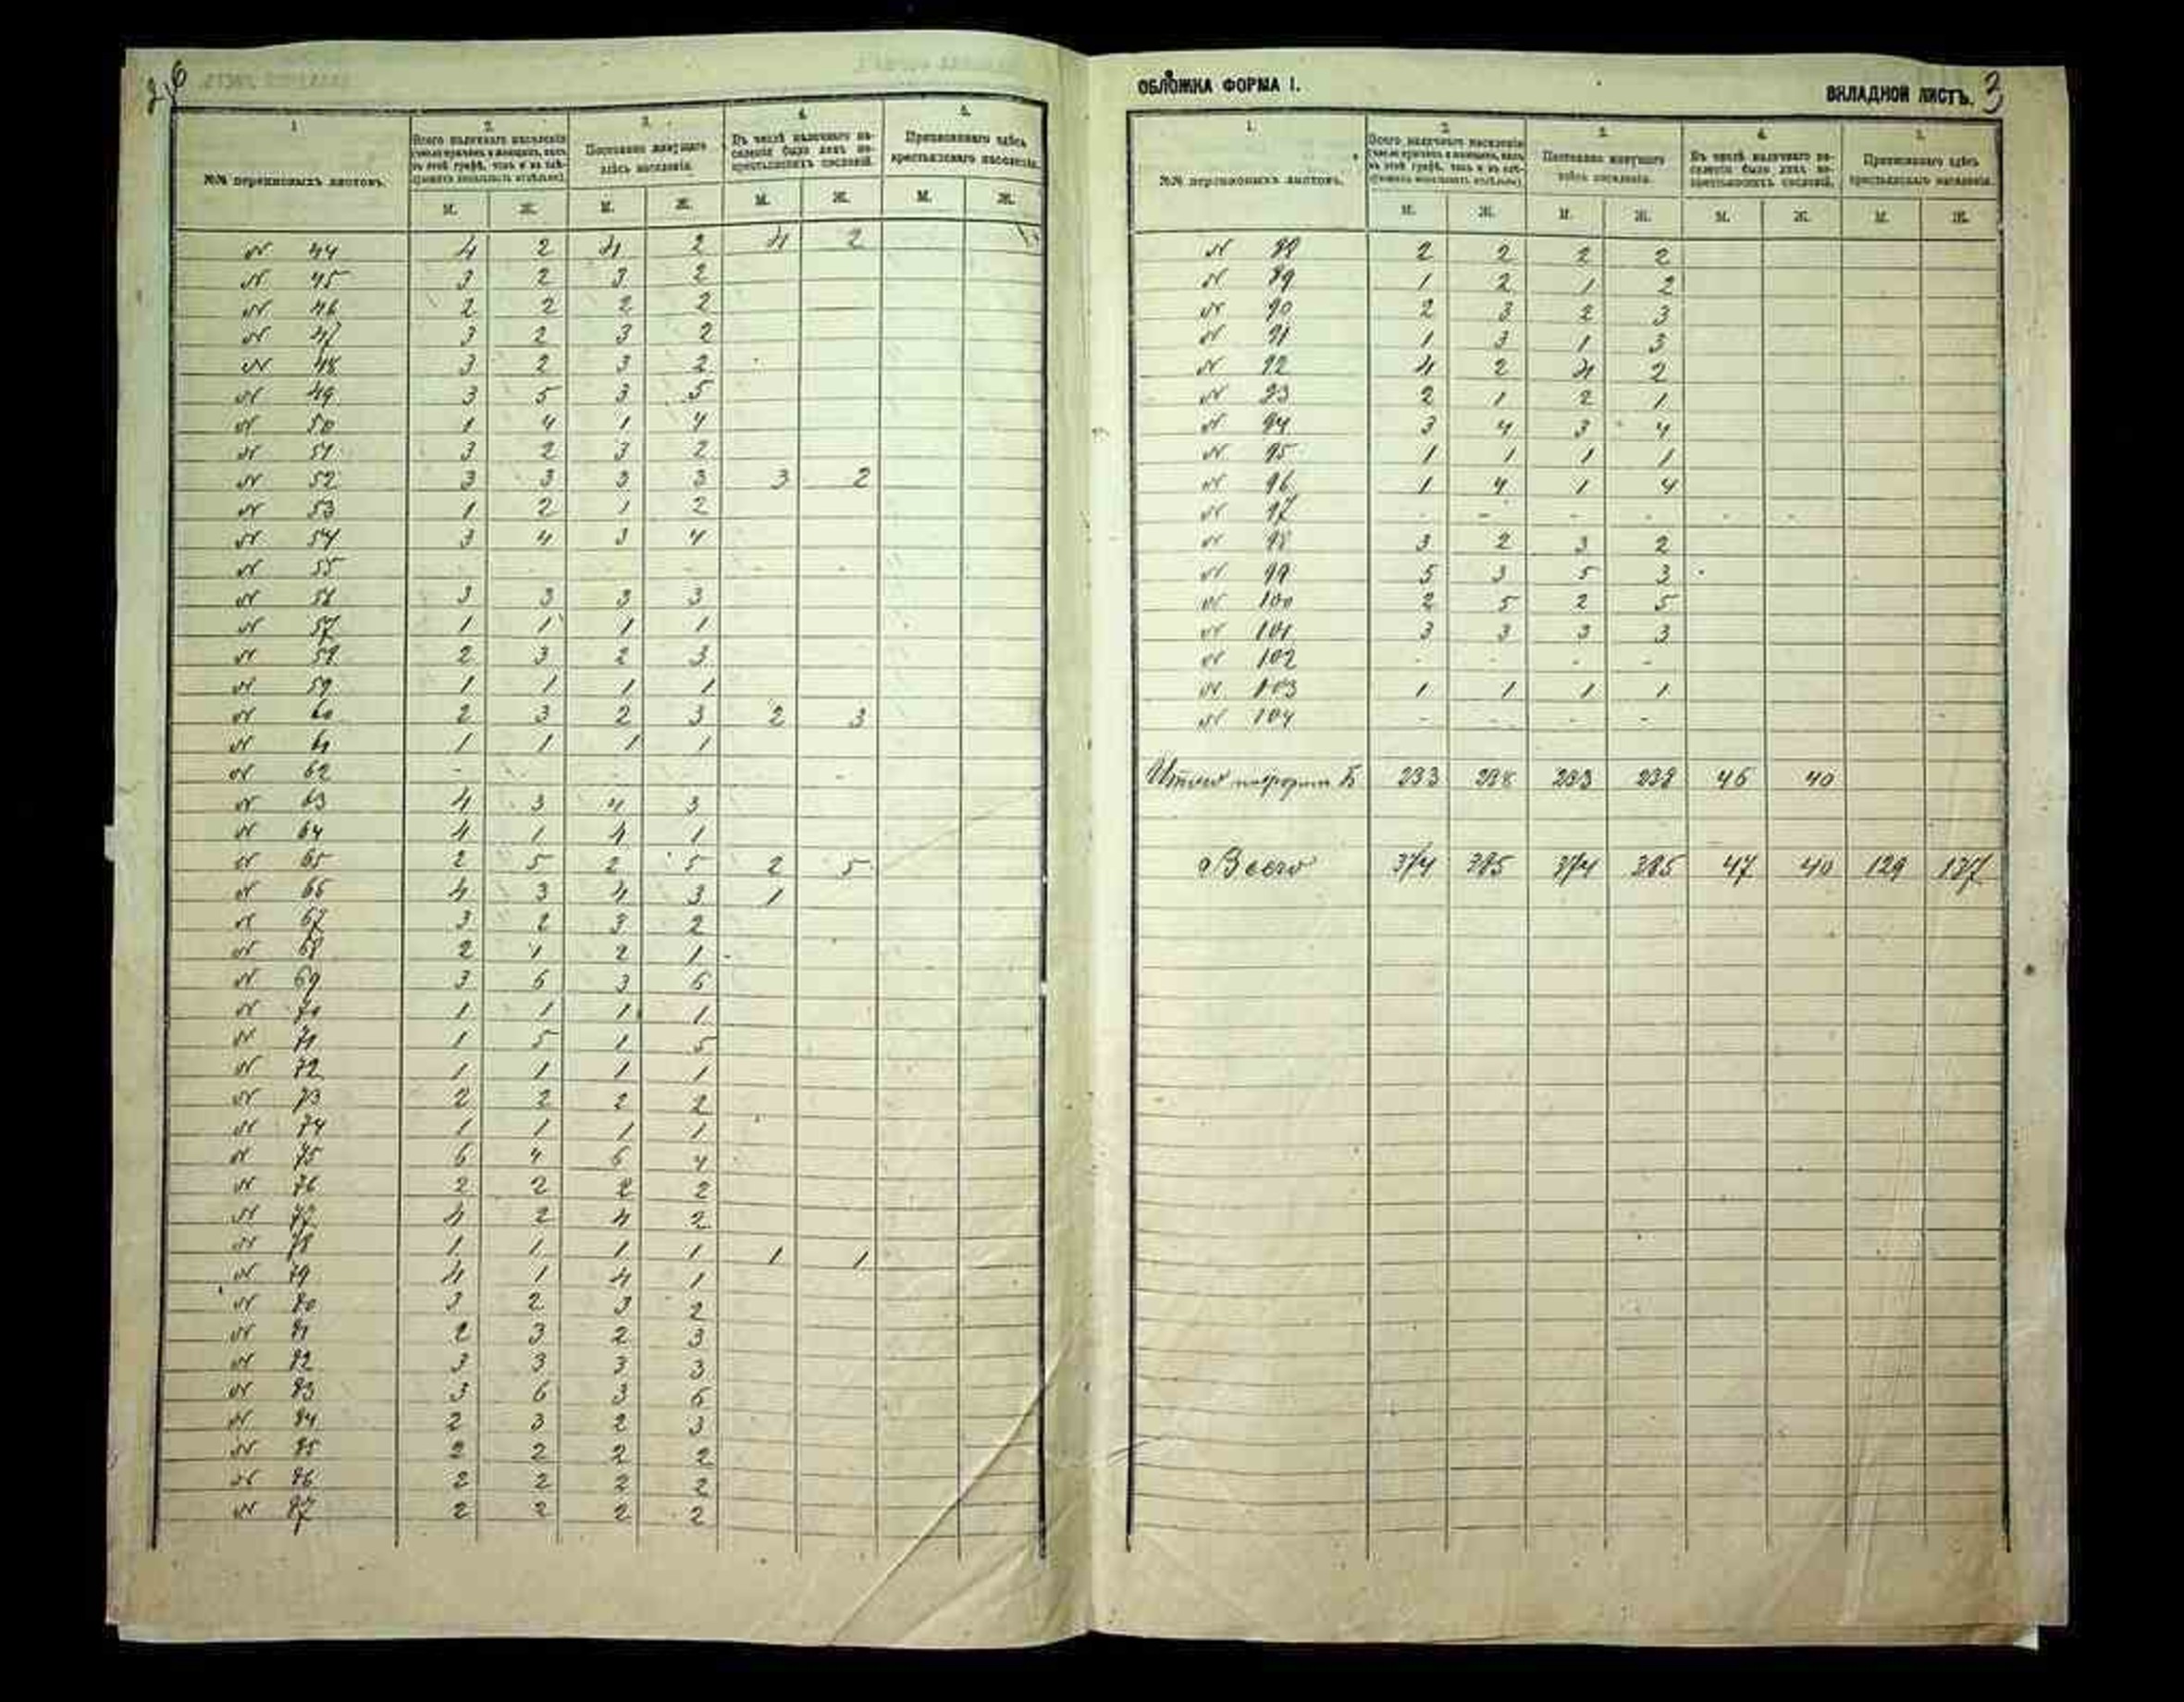 2 об
1
2.
3.
4.
5.
№№ переписныхъ листовъ.
Всего наличнаго населенія
Постоянно живущаго
здѣсь населенія.
Въ числѣ наличнаго населенія было лицъ некрестьянскихъ сословій.
Приписаннаго здѣсь
крестьянскаго населенія.
М. Ж. М. Ж. М. Ж. М. Ж.
№ 44 4 2 4 2 4 2
№ 45 3 2 3 2
№ 46 2 2 2 2
№ 47 3 2 3 2
№ 48 3 2 3 2
№ 49 3 5 3 5
№ 50 1 4 1 4
№ 51 3 2 3 2
№ 52 3 3 3 3 3 2
№ 53 1 2 1 2
№ 54 3 4 3 4
№ 55 - - - - - -
№ 56 3 3 3 3
№ 57 1 1 1 1
№ 58 2 3 2 3
№ 59 1 1 1 1
№ 60 2 3 2 3 2 3
№ 61 1 1 1 1
№ 62 - - - - - -
№ 63 4 3 4 3
№ 64 4 1 4 1
№ 65 2 5 2 5 2 5
№ 66 4 3 4 3 1
№ 67 3 2 3 2
№ 68 2 1 2 1
№ 69 3 6 3 6
№ 70 1 1 1 1
№ 71 1 5 1 5
№ 72 1 1 1 1
№ 73 2 2 2 2
№ 74 1 1 1 1
№ 75 6 4 6 4
№ 76 2 2 2 2
№ 77 4 2 4 2
№ 78 1 1 1 1 1 1
№ 79 4 1 4 1
№ 80 3 2 3 2
№ 81 2 3 2 3
№ 82 3 3 3 3
№ 83 3 6 3 6
№ 84 2 3 2 3
№ 85 2 2 2 2
№ 86 2 2 2 2
№ 87 2 2 2 2
ОБЛОЖКА ФОРМА I.
ВКЛАДНОЙ ЛИСТЪ. 3
1.
2.
3.
4.
5.
№№ переписныхъ листовъ.
Всего наличнаго населенія
Постоянно живущаго
здѣсь населенія.
Въ числѣ наличнаго населенія было лицъ некрестьянскихъ сословій.
Приписаннаго здѣсь
крестьянскаго населенія.
М. Ж. М. Ж. М. Ж. М. Ж.
№ 88 2 2 2 2
№ 89 1 2 1 2
№ 90 2 3 2 3
№ 91 1 3 1 3
№ 92 4 2 4 2
№ 93 2 1 2 1
№ 94 3 4 3 4
№ 95 1 1 1 1
№ 96 1 4 1 4
№ 97 - - - - - -
№ 98 3 2 3 2
№ 99 5 3 5 3
№ 100 2 5 2 5
№ 101 3 3 3 3
№ 102 - - - -
№ 103 1 1 1 1
№ 104 - - - -
Итого по форме Б 233 238 233 238 46 40
Всего 374 385 374 385 47 40 129 137